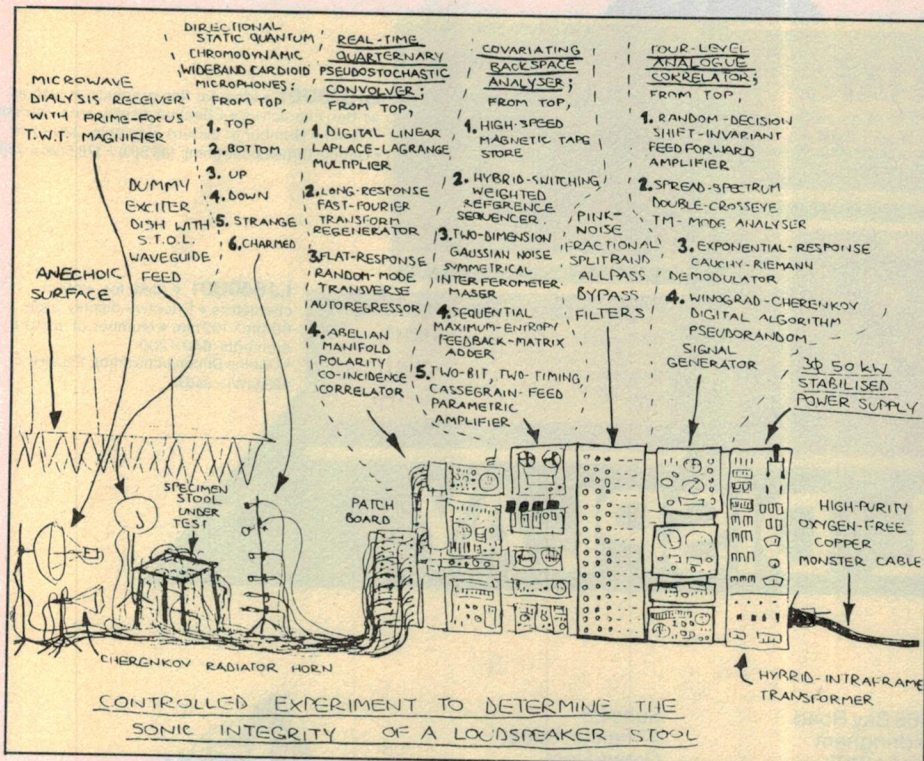 MICROWAVE
DIALYSIS RECEIVER
WITH PRIME-FOCUS
T.W.T MAGNIFIER
DUMMY
EXCITER
DISH WITH
S.T.O.L.
WAVEGUIDE
FEED
ANECHOIC
SURFACE
DIRECTIONAL
STATIC QUANTUM
CHROMODYNAMIC
WIDEBAND CARDIOID
MICROPHONES:
FROM TOP
1. TOP
2. BOTTOM
3. UP
4. DOWN
5. STRANGE
6. CHARMED
REAL-TIME
QUARTERNARY
PSEUDOSTOCHASTIC
CONVOLVER;
FROM TOP,
1. DIGITAL LINEAR
LAPLACE-LAGRANGE
MULTIPLIER
2. LONG-RESPONSE
FAST-FOURIER
TRANSFORM
REGENERATOR
3. FLAT-RESPONSE
RANDOM-MODE
TRANSVERSE
AUTOREGRESSOR
4. ABELIAN
MANIFOLD
POLARITY
CO-INCIDENCE
CORRELATOR
COVARIATING
BACKSPACE
ANALYSER;
FROM TOP,
1. HIGH-SPEED
MAGNETIC TAPE
STORE
2. HYBRID-SWITCHING
WEIGHTED
REFERENCE
SEQUENCER.
3. TWO-DIMENSION
GAUSSIAN NOISE
SYMMETRICAL
INTERFEROMETER
MASER
4. SEQUENTIAL
MAXIMUM-ENTROPY
FEEDBACK-MATRIX
ADDER
5. TWO-BIT, TWO-TIMING,
CASSEGRAIN-FEED
PARAMETRIC
AMPLIFIER
PINK-
NOISE
FRACTIONAL
SPLITBAND
ALLPASS
BYPASS
FILTERS
FOUR-LEVEL
ANALOGUE
CORRELATOR;
FROM TOP,
1. RANDOM-DECISION
SHIFT-INVARIANT
FEEDFORWARD
AMPLIFIER
2. SPREAD-SPECTRUM
DOUBLE-CROSSEYE
TM-MODE ANALYSER
3. EXPONENTIAL-RESPONSE
CAUCHY-RIEMANN
DEMODULATOR
4. WINOGRAD-CHERENKOV
DIGITAL ALGORITHM
PSEUDORANDOM
SIGNAL
GENERATOR
3Φ 50 kW
STABILISED
POWER SUPPLY
SPECIMEN
STOOL
UNDER
TEST
PATCH
BOARD
HIGH-PURITY
OXYGEN-FREE
COPPER
MONSTER CABLE
CHERENKOV RADIATOR HORN
HYBRID-INTRAFRAME
TRANSFORMER
CONTROLLED EXPERIMENT TO DETERMINE THE
SONIC INTEGRITY OF A LOUDSPEAKER STOOL